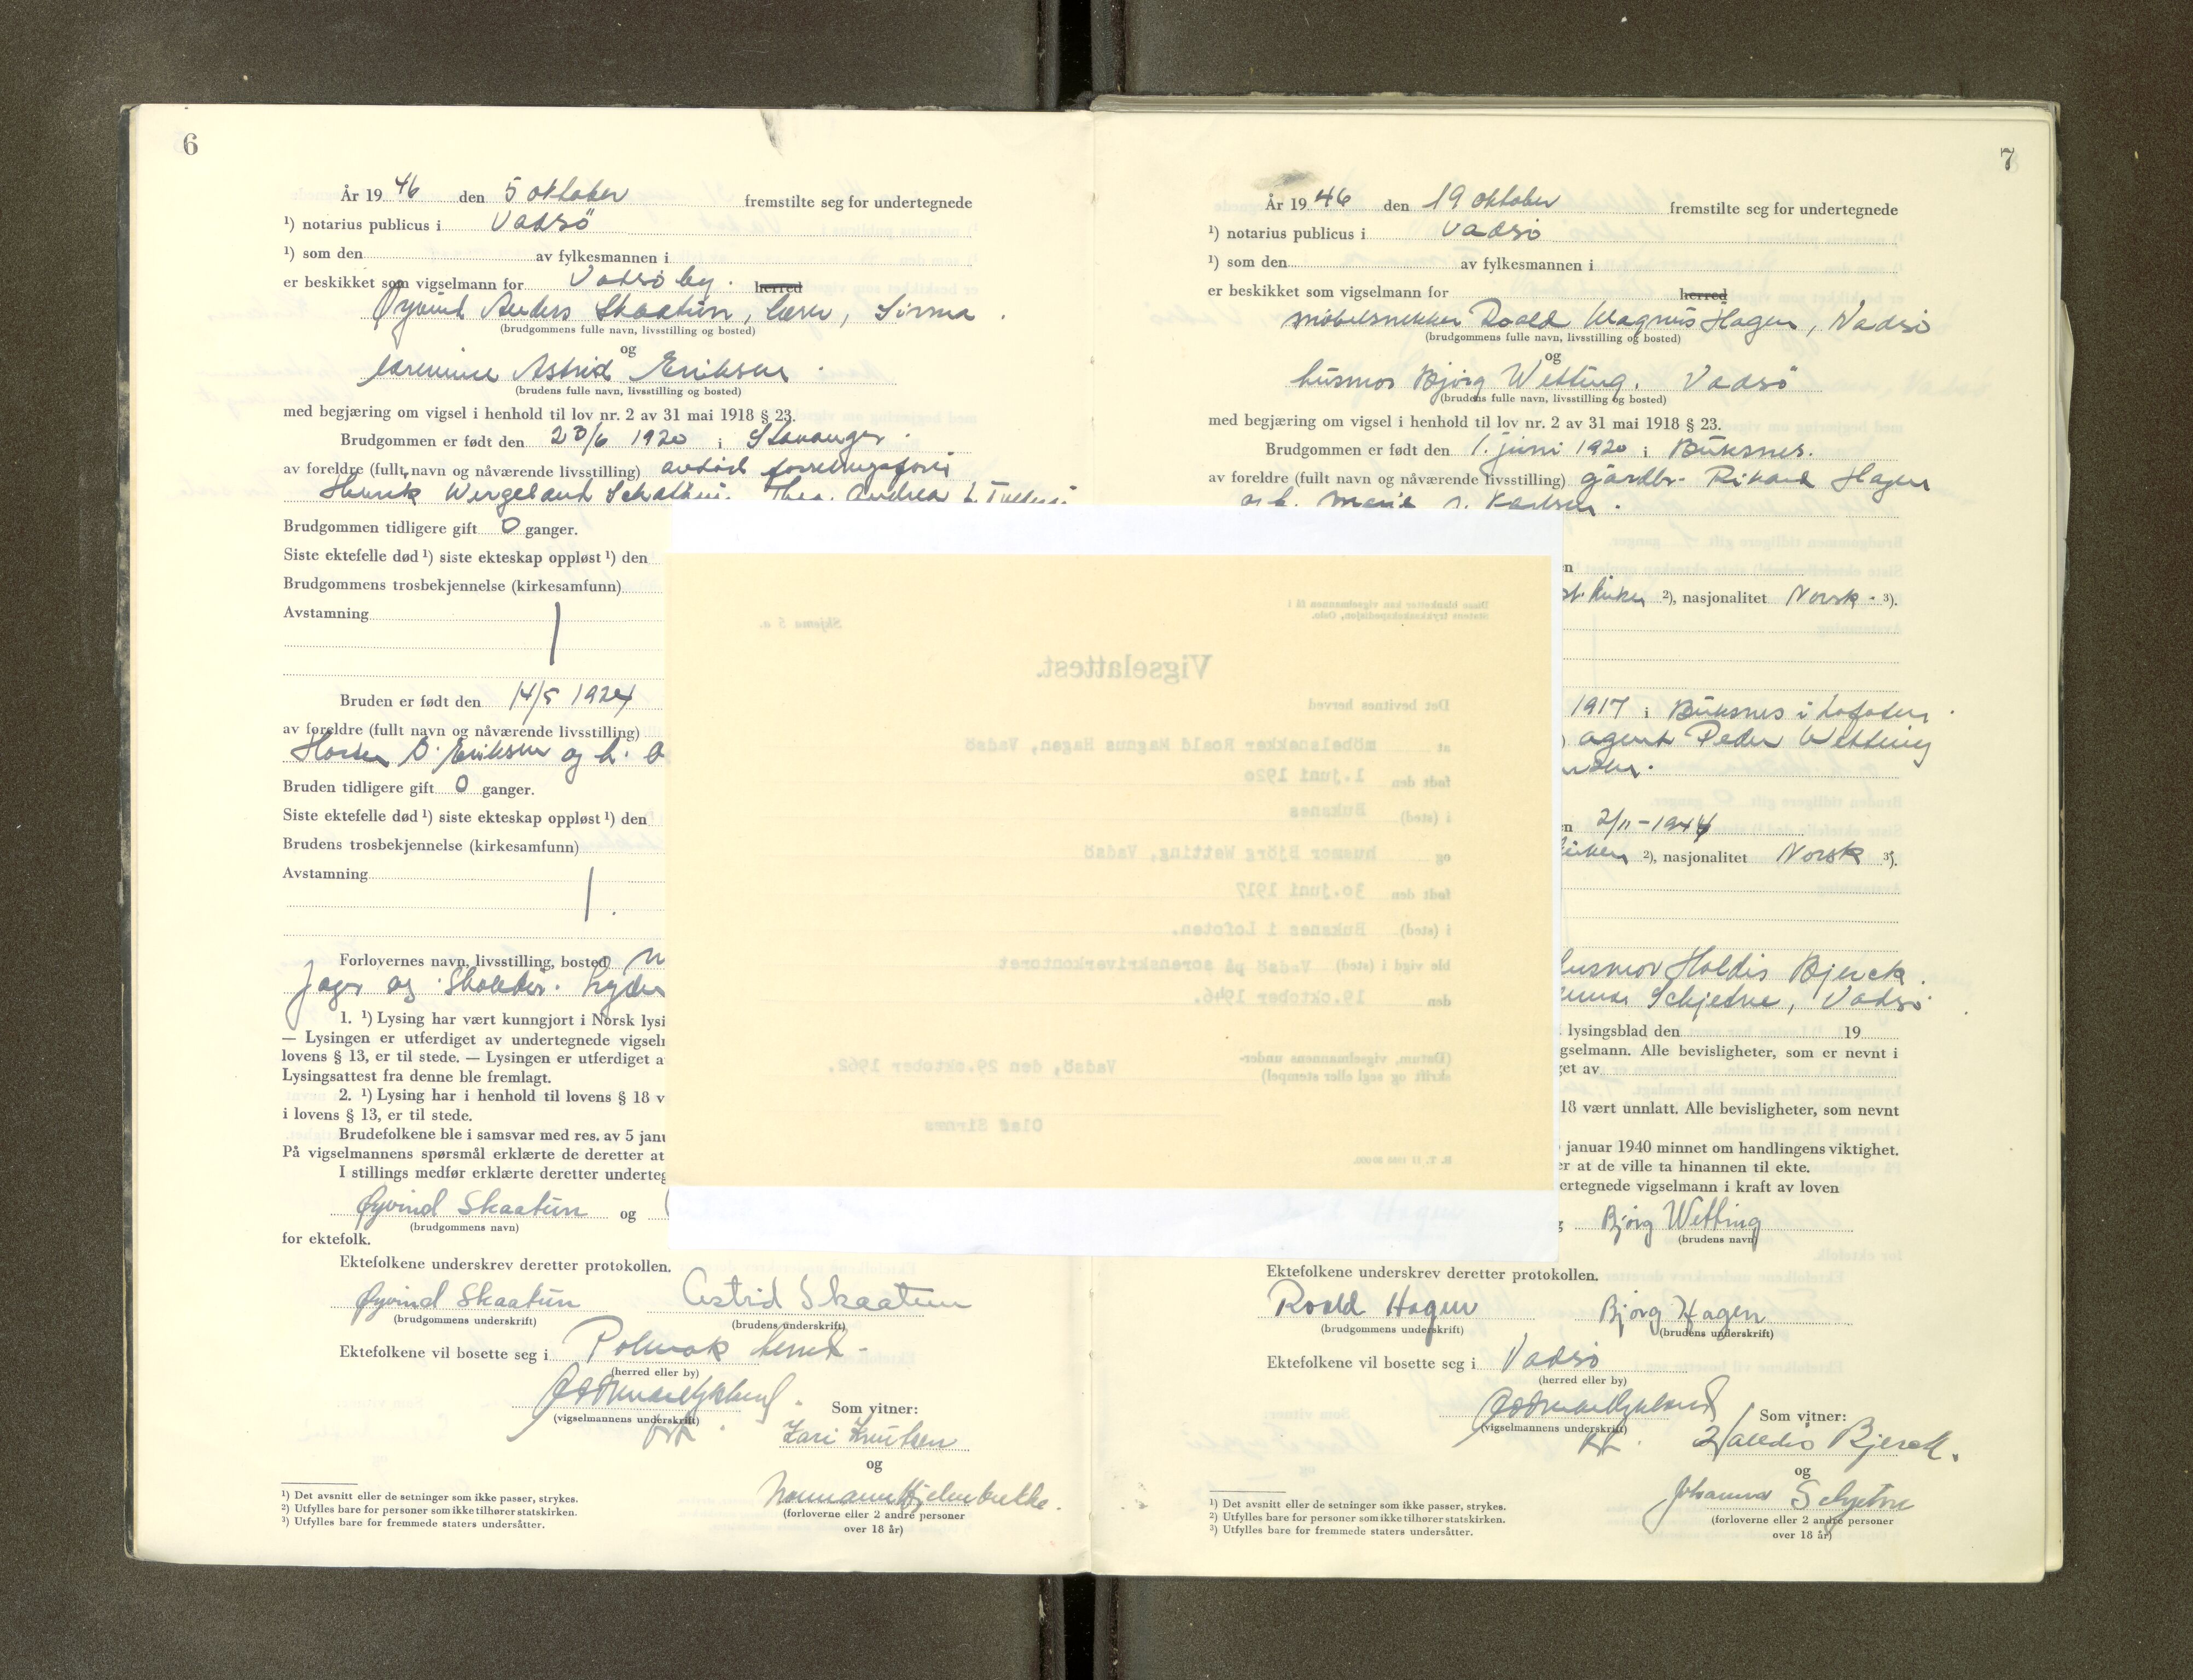 6
År 19 46 den 5 oktober fremstilte seg for undertegnede
¹) notarius publicus i Vadsö
¹) som den av fylkesmannen i
er beskikket som vigselmann for Vadsö by. herred
Øyvind Anders Skaatun, lærer, Sirma.
(brudgommens fulle navn, livsstilling og bosted)
og
lærerinne Astrid Eriksen.
(brudens fulle navn, livsstilling og bosted)
med begjæring om vigsel i henhold til lov nr. 2 av 31 mai 1918 § 23.
Brudgommen er født den 23/6 1920 i Stavanger.
av foreldre (fullt navn og nåværende livsstilling) avdöd
Henrik Wergeland Thea. Andrea
Brudgommen tidligere gift 0 ganger.
Siste ektefelle død ¹) siste ekteskap oppløst ¹) den
Brudgommens trosbekjennelse (kirkesamfunn)
Avstamning
Bruden er født den 14/5 1924
av foreldre (fullt navn og nåværende livsstilling)
Eriksen og h.
Bruden tidligere gift 0 ganger.
Siste ektefelle død ¹) siste ekteskap oppløst ¹) den
Brudens trosbekjennelse (kirkesamfunn)
Avstamning
Forlovernes navn, livsstilling, bosted
og
1. ¹) Lysing har vært kunngjort i Norsk lysi
— Lysingen er utferdiget av undertegnede vigseln
lovens § 13, er til stede. — Lysingen er utferdiget a
Lysingsattest fra denne ble fremlagt.
2. ¹) Lysing har i henhold til lovens § 18 v
i lovens § 13, er til stede.
Brudefolkene ble i samsvar med res. av 5 janu
På vigselmannens spørsmål erklærte de deretter at
I stillings medfør erklærte deretter underteg
Øyvind Skaatun og
(brudgommens navn)
for ektefolk.
Ektefolkene underskrev deretter protokollen.
Øyvind Skaatun Astrid Skaatun
(brudgommens underskrift) (brudens underskrift)
Ektefolkene vil bosette seg i Polmak herred.
(herred eller by)
(vigselmannens underskrift)
Som vitner:
Kari Knutsen
og
(forloverne eller 2 andre personer
over 18 år)
¹) Det avsnitt eller de setninger som ikke passer, strykes.
²) Utfylles bare for personer som ikke tilhører statskirken.
³) Utfylles bare for fremmede staters undersåtter.
Disse blanketter kan vigselmannen få i
Statens trykksaksekspedisjon, Oslo.
Skjema 5 a.
Vigselattest.
Det bevitnes herved
at möbelsnekker Roald Magnus Hagen, Vadsö
født den 1.juni 1920
i (sted) Buksnes
og husmor Björg Wetting, Vadsö
født den 30.juni 1917
i (sted) Buksnes i Lofoten.
ble vigd i (sted) Vadsö på sorenskriverkontoret
den 19.oktober 1946.
(Datum, vigselmannens under-
skrift og segl eller stempel)
Vadsö, den 29.oktober 1962.
Olaf Sirnes
7
År 19 46 den 19 oktober fremstilte seg for undertegnede
¹) notarius publicus i Vadsö
¹) som den av fylkesmannen i
er beskikket som vigselmann for herred
möbelsnekker Roald Magnus Hagen, Vadsö
(brudgommens fulle navn, livsstilling og bosted)
og
husmor Björg Wetting. Vadsö
(brudens fulle navn, livsstilling og bosted)
med begjæring om vigsel i henhold til lov nr. 2 av 31 mai 1918 § 23.
Brudgommen er født den 1. juni 1920 i Buksnes.
av foreldre (fullt navn og nåværende livsstilling) gårdbr. Rikard Hagen
og h. Marie Karlsen.
en
st. kirken ²), nasjonalitet Norsk. ³).
1917 i Buksnes i Lofoten.
) agent Peder Wetting
en 2/11-1944
kirken ²), nasjonalitet Norsk ³).
husmor Haldis Bjerck
Schjetne, Vadsö
. lysingsblad den 19
gselmann. Alle bevisligheter, som er nevnt i
get av
18 vært unnlatt. Alle bevisligheter, som nevnt
januar 1940 minnet om handlingens viktighet.
er at de ville ta hinannen til ekte.
ertegnede vigselmann i kraft av loven
g Björg Wetting
(brudens navn)
Ektefolkene underskrev deretter protokollen.
Roald Hagen Björg Hagen
(brudgommens underskrift) (brudens underskrift)
Ektefolkene vil bosette seg i Vadsö
(herred eller by)
(vigselmannens underskrift)
Som vitner:
Halldis Bjerck.
og
Johanna Schjetne
(forloverne eller 2 andre personer
over 18 år)
¹) Det avsnitt eller de setninger som ikke passer, strykes.
²) Utfylles bare for personer som ikke tilhører statskirken.
³) Utfylles bare for fremmede staters undersåtter.